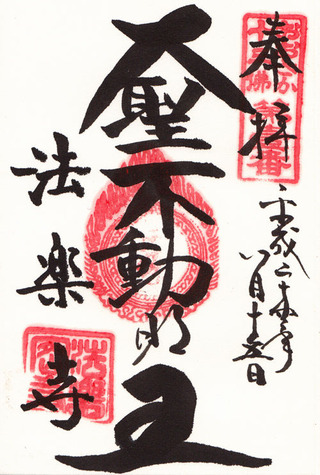 奉拝
平成二十年
八月十五日
大聖不動明王
法楽寺